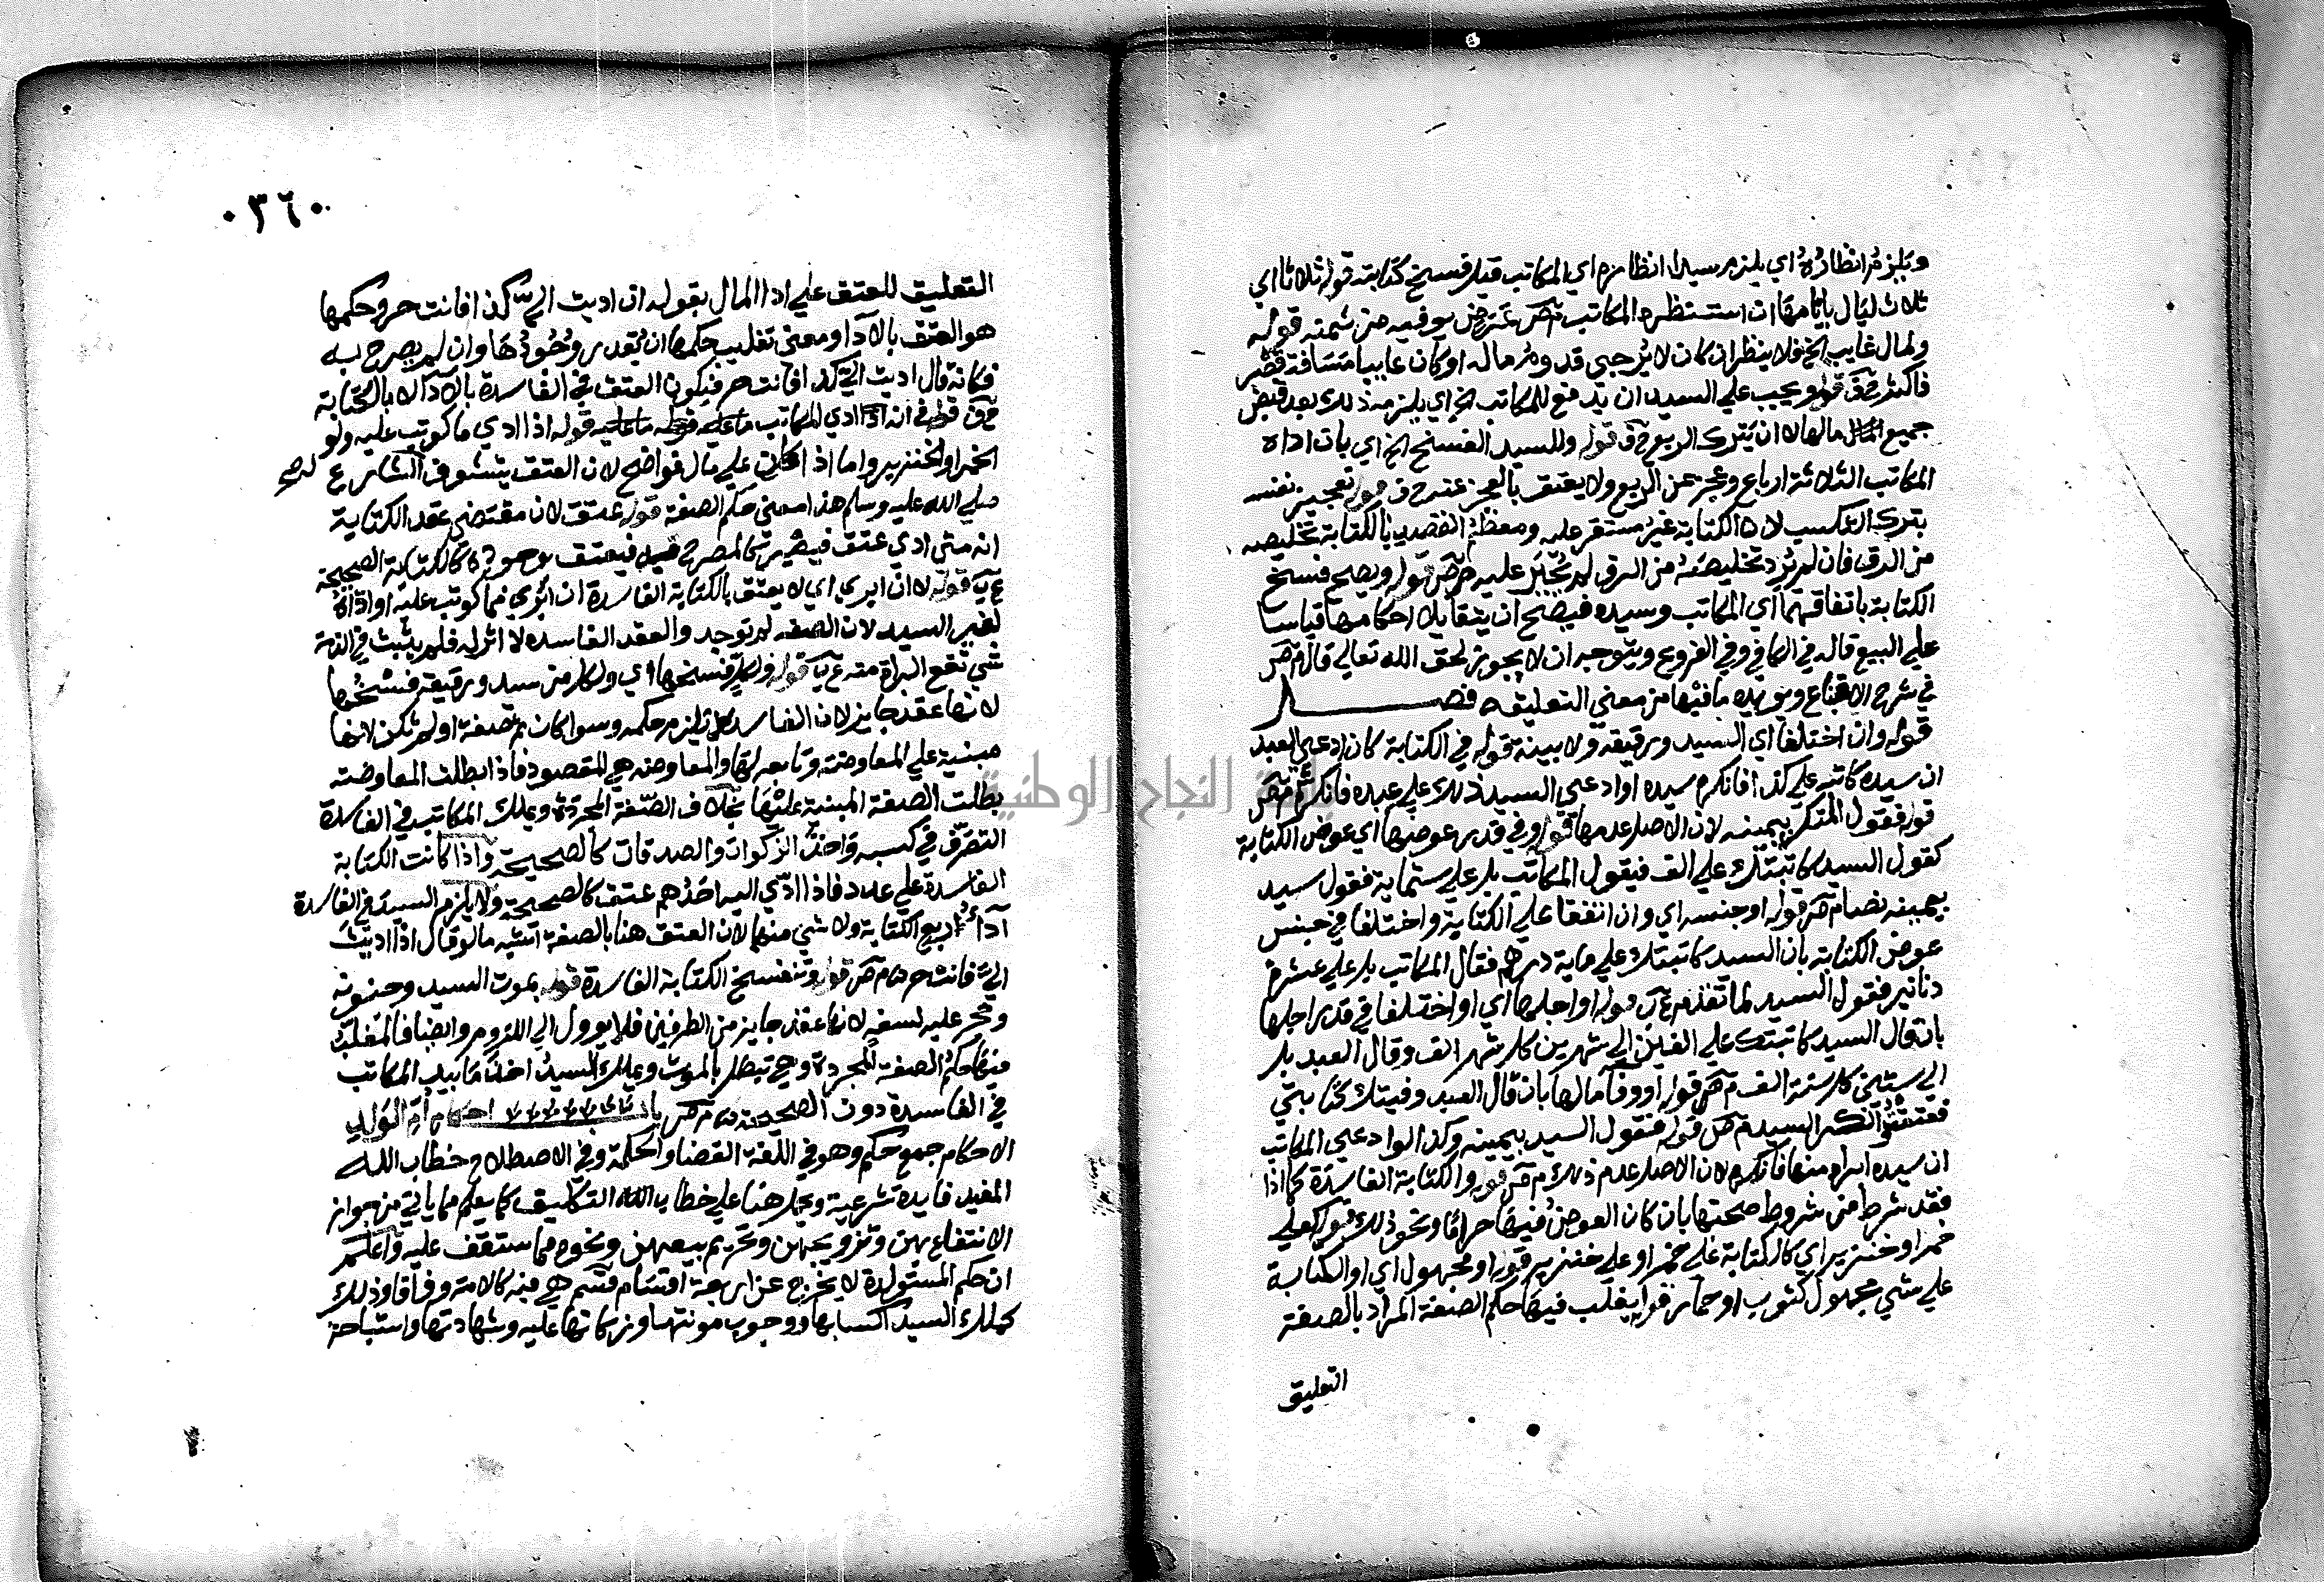 ويلزم انظاره اي يلزم سيدا انظاره اي المكاتب قبل فسخ كتابته قوله ثلاثا اي
ثلاث ليال بايامها ان استنظره المكاتب لبيع عرض يوفيه من ثمنه قوله
ولمال غايب الخ فلا ينظر ان كان لا يرجي قدومه ماله او كان غايبا مسافة قصر
فاكثر قوله ويجب علي السيد ان يدفع للمكاتب الخ اي يلزمه ذلك بعد قبض
جميع مالها لا ان يترك الربع قوله وللسيد الفسخ الخ اي بان اداه
المكاتب الثلاثة ارباع وعجز عن الربع ولا يعتق بالعجز عنه قوله تعجيز نفسه
بترك التكسب لان الكتابة غير مستقر عليه ومعظم القصد بالكتابة تخليصه
من الرق فان لم يرد تخليصه من الرق لم يجبر عليه قوله ويصح فسخ
الكتابة باتفاقهما اي المكاتب وسيده فيصح ان يتقايلا احكامها قياسا
علي البيع قاله في الكافي وفي الفروع ويتوجه ان لا يجوز لحق الله تعالي قال
في شرح الاقناع ويويده ما فيها من معني التعليق فصل
قوله وان اختلفا اي السيد ورقيقه ولا بينة قوله في الكتابة كان ادعي العبد
ان سيده كاتبه علي كذا فانكره سيده او ادعي السيد ذلك علي عبده فانكره
قوله فقول المنكر بيمينه لان الاصل عدمها قوله وفي قدر عوضها اي عوض الكتابة
كقول السيد كاتبتك علي الف فيقول المكاتب بل علي ستماية فقول سيد
بيمينه نصا قوله او جنسه اي وان اتفقا علي الكتابة واختلفا في جنس
عوض الكتابة بان السيد كاتبتك علي ماية درهم فقال المكاتب بل علي عشرة
دنانير فقول السيد لما تقدم قوله او اجلها اي او اختلفا في قدر اجلها
بان قال السيد كاتبتك علي الفين الي شهرين كل شهر الف وقال العبد بل
الي سنتين كل سنة الف قوله او وفا مالها بان قال العبد وفيتك كتابتي
فعتقت وانكر السيد قوله فقول السيد بيمينه وكذا لو ادعي المكاتب
ان سيده ابراه منها فانكره لان الاصل عدم ذلك قوله والكتابة الفاسدة كما اذا
فقد شرط من شروط صحتها بان كان العوض فيها حراما ونحو ذلك قوله كعلي
خمر او خنزير اي كالكتابة علي خمر او علي خنزير قوله او مجهول اي او الكتابة
علي شي مجهول كثوب او حمار قوله يغلب فيها حكم الصفة المراد بالصفة
التعليق
٠٣٦٠
التعليق للعتق علي ادا المال بقوله ان اديت الي كذا فانت حر وحكمها
هو العتق بالادا ومعني تغليب حكمها ان يقدر وجودها وان لم يصرح به
فكانه قال اديت الي كذا فانت حر فيكون العتق في الفاسدة بالادا لا بالكتابة
قوله في ان ادي المكاتب ما عليه قوله اذا ادي ما كوتب عليه ولو
الخمر او الخنزير واما اذا كان علي مال فواضح لان العتق يتشوف الشارع له
صلي الله عليه وسلم هذا معني حكم الصفة قوله عتق لان مقتضي عقد الكتابة
انه متي ادي عتق فيصير كالمصرح به فيعتق بوجوده كالكتابة الصحيحة
قوله لا ان ابري اي لا يعتق بالكتابة الفاسدة ان ابري مما كوتب عليه او اداه
لغير السيد لان الصفه لم توجد والعقد الفاسد لا اثر له فلم يثبت في الذمة
شي تقع البراة منه قوله ولكل فسخها اي ولكل من سيد ورقيقه فسخها
لانها عقد جايز لان الفاسد لا يلزم حكمه وسوا كان ثم صفة او لم تكن لانها
مبنية علي المعاوضة وتابعه لها والمعاوضه هي المقصود فاذا بطلت المعاوضة
بطلت الصفة المبنية عليها بخلاف الصفة المجردة ويملك المكاتب في الفاسدة
التصرف في كسبه واخذ الزكوات والصدقات كالصحيحة واذا كانت الكتابة
الفاسدة علي عدد فاذا ادي اليه احدهم عتق كالصحيحة ولا يلزم السيد في الفاسدة
اداء ربع الكتابة ولا شي منها لان العتق هنا بالصفة اشبه ما لو قال اذا اديت
الي فانت حر قوله وتنفسخ الكتابة الفاسدة قوله بموت السيد وجنونه
وحجر عليه لسفه لانها عقد جايز من الطرفين فلا يوول الي اللزوم وايضا فالمغلب
فيها حكم الصفة المجردة وهي تبطل بالموت ويملك السيد اخذ ما بيد المكاتب
في الفاسدة دون الصحيحة باب احكام ام الولد
الاحكام جمع حكم وهو في اللغة القضا والحكمة وفي الاصطلاح خطاب الله
المفيد فايدة شرعية ويحمل هنا علي خطاب الله التكليف كما يعلم مما ياتي من جواز
الانتفاع بهن وتزويجهن وتحريم بيعهن ونحوه مما ستقف عليه واعلم
ان حكم المستولدة لا يخرج عن اربعة اقسام قسم هي فيه كالامة وفاقا وذلك
كملك السيد اكسابها ووجوب مونتها وزكاتها عليه وشهادتها واستباحة
جامعة النجاح الوطنية